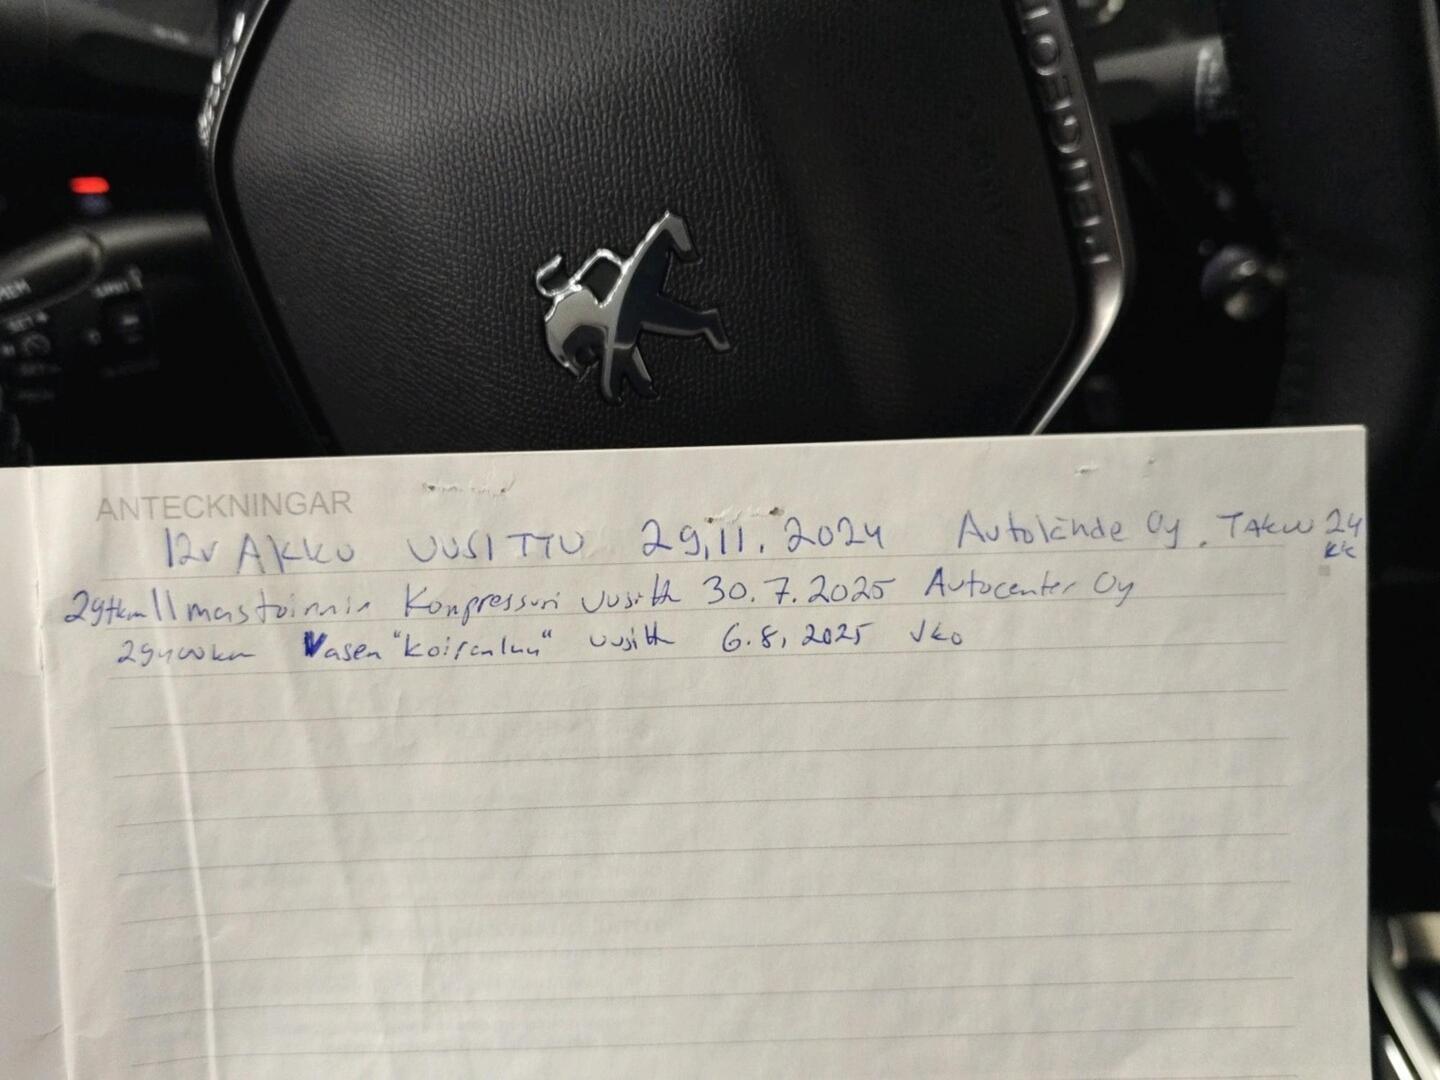 PEUGEOT
ANTECKNINGAR
12v AKKU UUSITTU 29.11.2024 Autolände Oy. TAKUU 24
kk
29tkm Ilmastoinnin Kompressori Uusittu 30.7.2025 Autocenter Oy
29400km Vasen "koiranluu" uusittu 6.8.2025 JKO